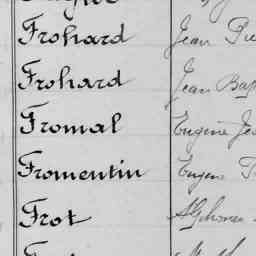 Frohard Jean
Frohard Jean
Fromal Eugène
Fromentin Eugene
Frot Alphonse